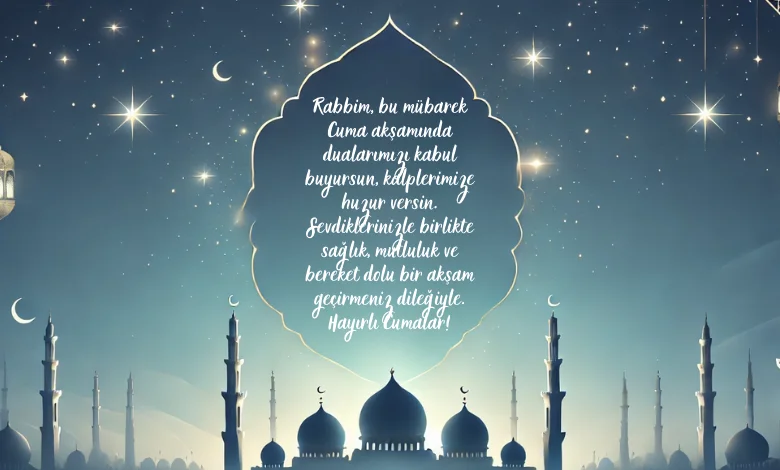 Rabbim, bu mübarek
Cuma akşamında
dualarımızı kabul
buyursun, kalplerimize
huzur versin.
Sevdiklerinizle birlikte
sağlık, mutluluk ve
bereket dolu bir akşam
geçirmeniz dileğiyle.
Hayırlı Cumalar!